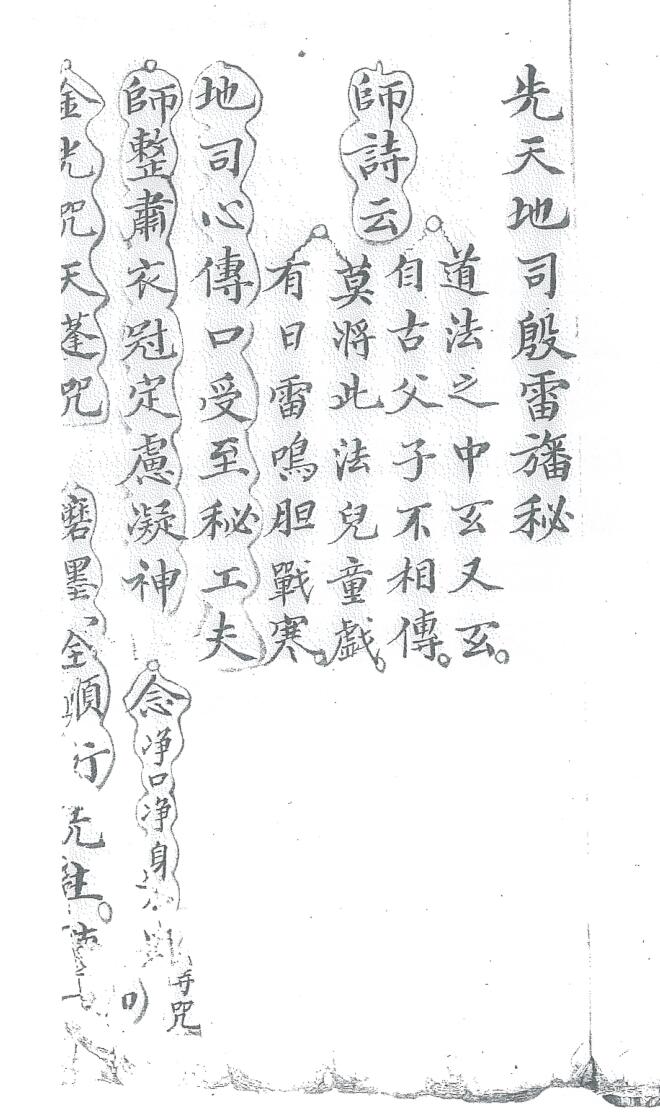 先天地司殷雷旛秘
師詩云
道法之中玄又玄。
自古父子不相傳。
莫將此法兒童戲。
有日雷鳴胆戰寒。
地司心傳口受至秘工夫
師整肅衣冠定慮凝神
念净口净身
咒
金光咒天蓬咒
磨墨
順行